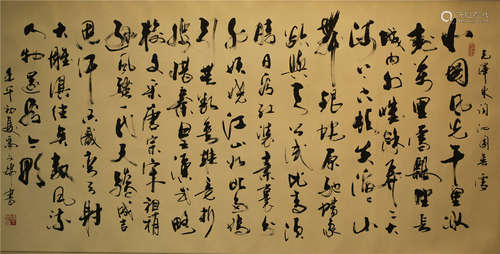 毛泽东词沁园春雪
北国风光千里冰
封万里雪飘望长
城内外惟余莽莽大
河上下顿失滔滔山
舞银蛇原驰蜡象
欲与天公试比高须
晴日看红装素裹分
外妖娆江山如此多娇
引无数英雄竞折
腰惜秦皇汉武略
输文采唐宗宋祖稍
逊风骚一代天骄成吉
思汗只识弯弓射
大雕俱往矣数风流
人物还看今朝
初夏高书